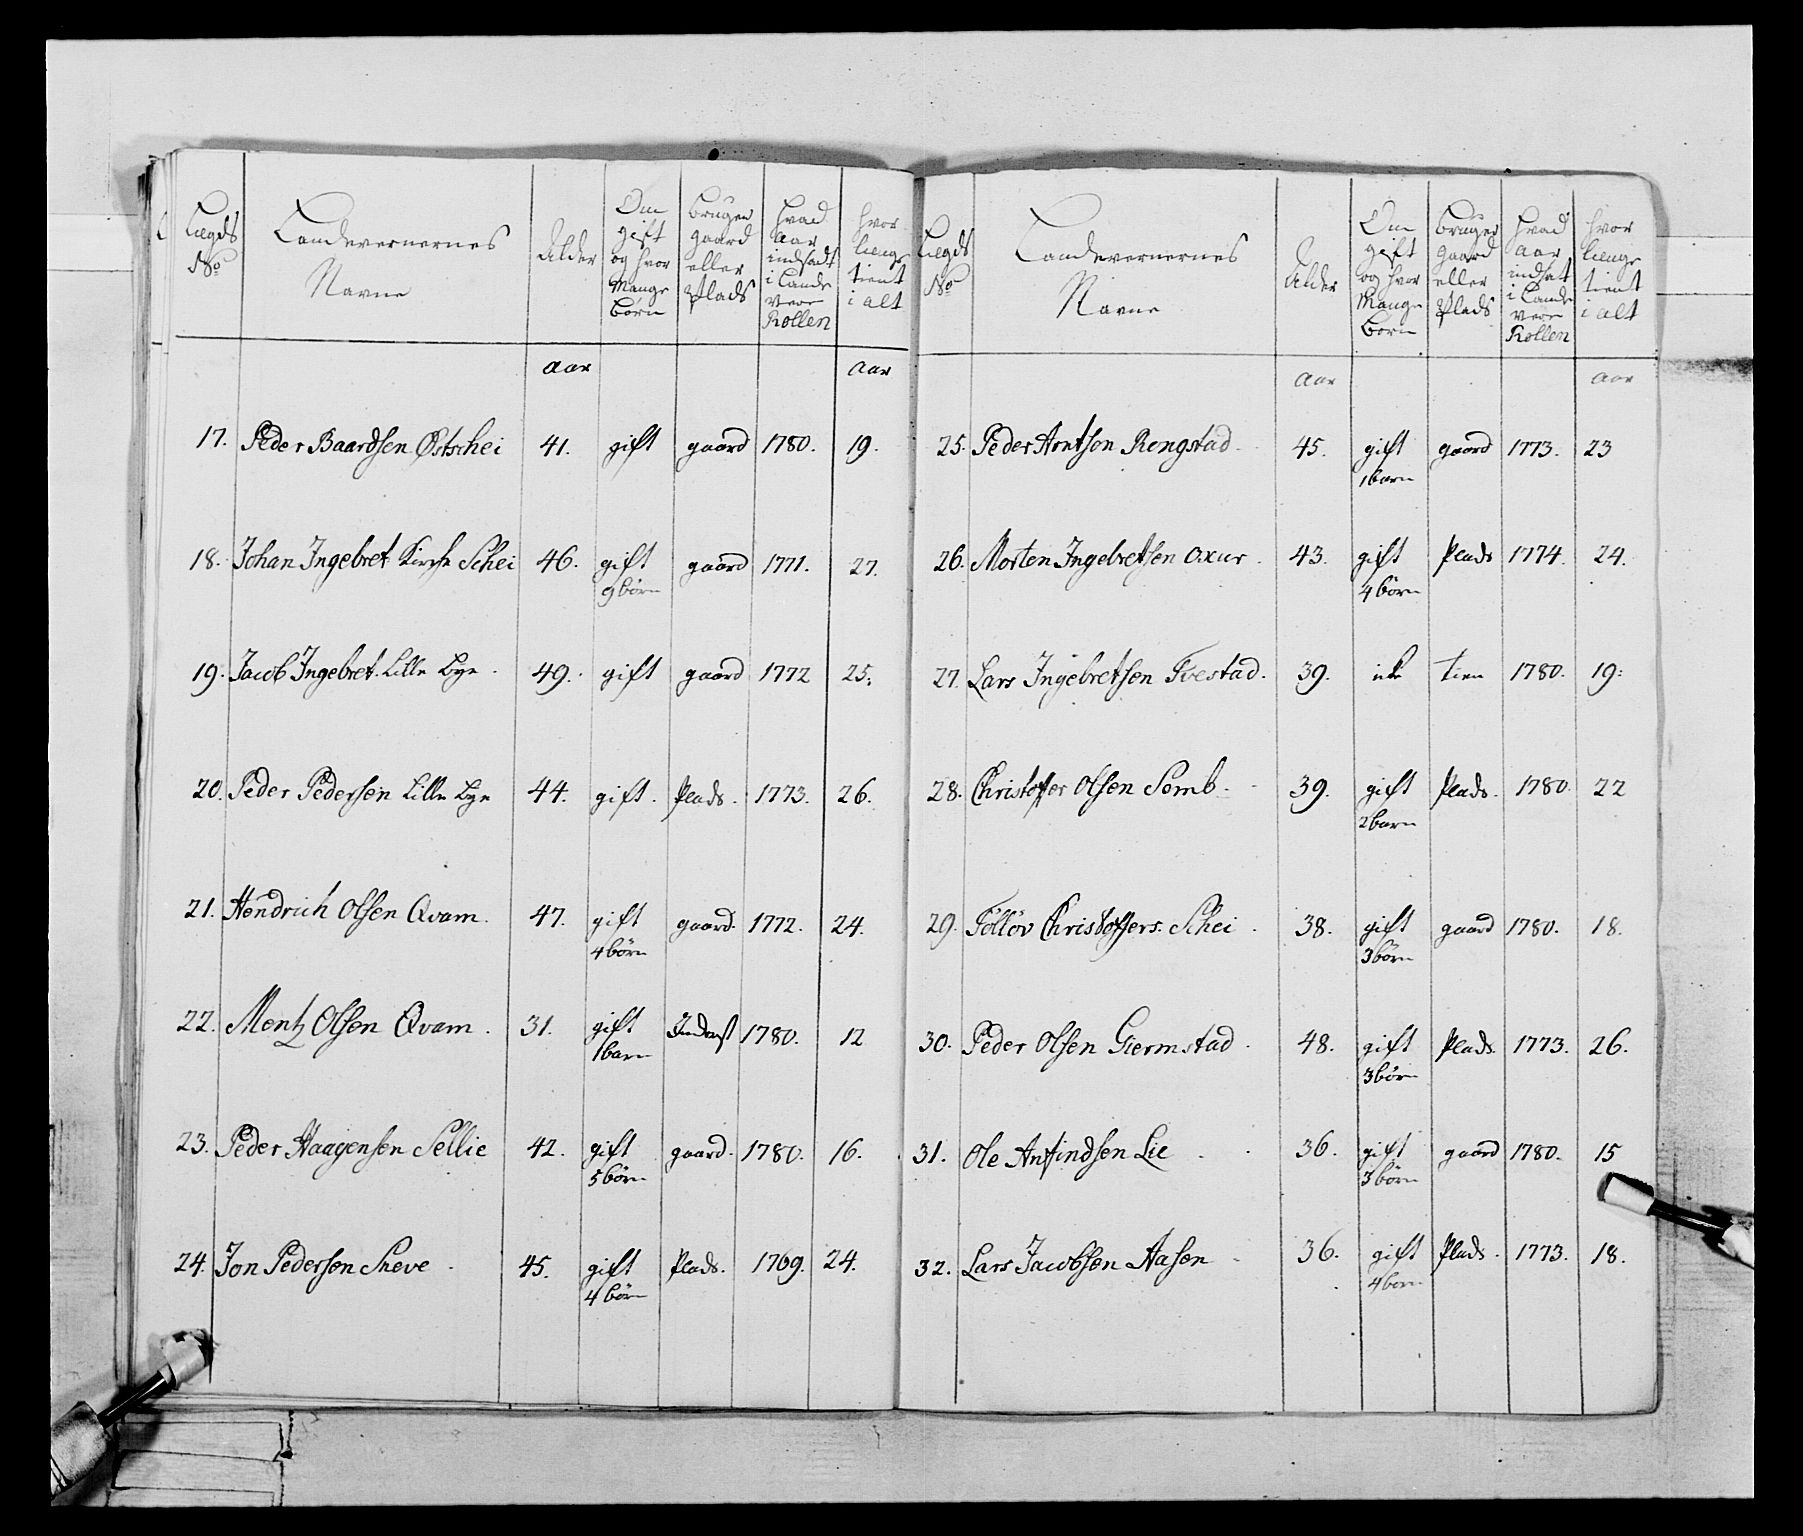 Lægds No | Landevernernes Navne | Alder | Om gift og hvor Mange børn | bruger gaard eller Plads | hvad aar indsadt i Lande vern Rollen | hvor længe tient i alt
aar | aar
17. Peder Baardsen Østschei | 41. | gift | gaard | 1780. | 19.
18. Johan Ingebret Kirche Schei | 46. | gift 9 børn | gaard | 1771. | 27.
19. Jacob Ingebret Lille bye | 49. | gift | gaard | 1772 | 25.
20. Peder Pedersen Lille bye | 44. | gift. | Plads. | 1773. | 26.
21. Hendrich Olsen Qvam. | 47. | gift 4 børn | gaard. | 1772. | 24.
22. Mentz Olsen Qvam. | 31. | gift 1 barn | Inderst | 1780. | 12
23. Peder Haagensen Sellie | 42. | gift 5 børn | gaard. | 1780. | 16.
24. Jon Pedersen Sheve | 45. | gift 4 børn | Plads. | 1769. | 24.
Lægds No | Landevernernes Navne | Alder | Om gift og hvor Mange børn | bruger gaard eller Plads | hvad aar indsat i Lande vern Rollen | hvor længe tient i alt
aar | aar
25. Peder Arntsen Rengstad | 45. | gift 1 barn | gaard | 1773. | 23
26. Morten Ingebretsen Oxur | 43. | gift 4 børn | Plads | 1774. | 24.
27. Lars Ingebretsen Tvestad. | 39. | | tien | 1780. | 19.
28. Christoffer Olsen Semb. | 39. | gift 2 barn | Plads. | 1780. | 22
29. Föllöv Christoffers. Schei | 38. | gift 3 børn | gaard | 1780. | 18.
30. Peder Olsen Giermstad | 48. | gift 3 børn | Plads. | 1773. | 26.
31. Ole Anfindsen Lie | 36. | gift 3 børn | gaard | 1780. | 15
32. Lars Jacobsen Aasen | 36. | gift 4 børn | Plads. | 1773. | 18.